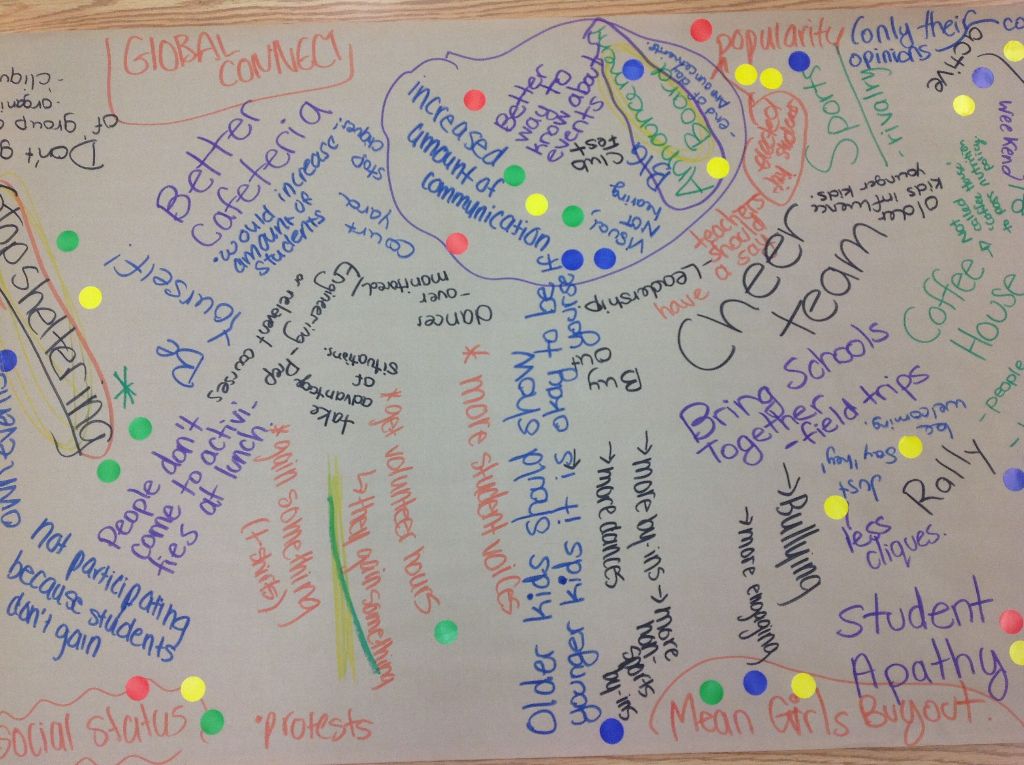 GLOBAL
CONNECT
Better
Cafeteria
• would increase
amount of
students
stop
clique!
Court
yard
increased
amount of
communication
Better
way to
know about
events
Club
Fast
Big
Announcement
Board
- end of day
announcements
Visual,
NOT
hearing
popularity
(only their
opinions
Sports
- rivalry
selected
by student
teachers
should
have a say
active
Weekend
Older
kids influence
younger kids.
Cheer
team
Coffee
House
- people
Don't
of group
- organi
- cliqu
stop sheltering
B
Yourself!
Engineering - Prep
or relevent courses
take
advantage
of
situations.
dances
- over
monitored/
- Leadership
Buy
Out
People don't
come to activi-
ties at lunch.
own
* gain something
(t-shirts)
* get volunteer hours
↳ they gain something
* more student voices
Older kids should show
younger kids it is okay to be
yourself
→ more dances
→ more by-ins → more
non-
sports
by-ins
Bring Schools
Together
- field trips
→ Bullying
→ more engaging
Just
Say "hey"
be
welcoming.
Rally
less
cliques.
Student
Apathy
not participating
because students
don't gain
social status
• protests
Mean Girls Buyout.